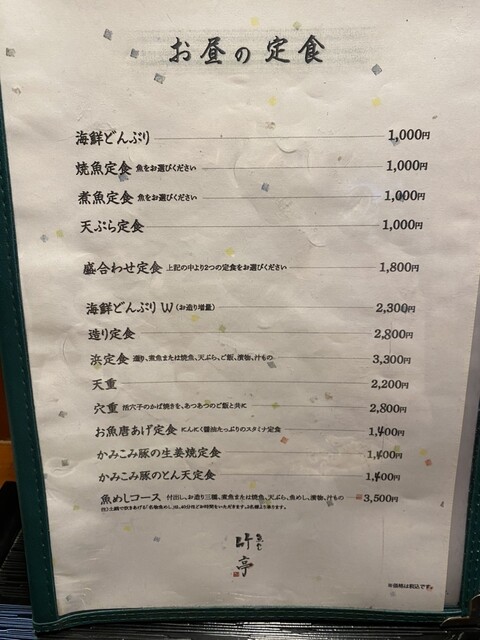 お昼の定食
海鮮どんぶり 1,000円
焼魚定食 魚をお選びください 1,000円
煮魚定食 魚をお選びください 1,000円
天ぷら定食 1,000円
盛合わせ定食 上記の中より2つの定食をお選びください 1,800円
海鮮どんぶりW(お造り増量) 2,300円
造り定食 2,800円
浜定食 造り、煮魚または焼魚、天ぷら、ご飯、漬物、汁もの 3,300円
天重 2,200円
穴重 活穴子のかば焼きを、あつあつのご飯と共に 2,800円
お魚唐あげ定食 にんにく醤油たっぷりのスタミナ定食 1,400円
かみこみ豚の生姜焼定食 1,400円
かみこみ豚のとん天定食 1,400円
魚めしコース 付出し、お造り三種、煮魚または焼魚、天ぷら、魚めし、漬物、汁もの 3,500円
注)土鍋で炊きあげる「名物魚めし」は、40分ほどお時間をいただきます。2名様より承ります。
魚や
竹亭
※価格は税込です。